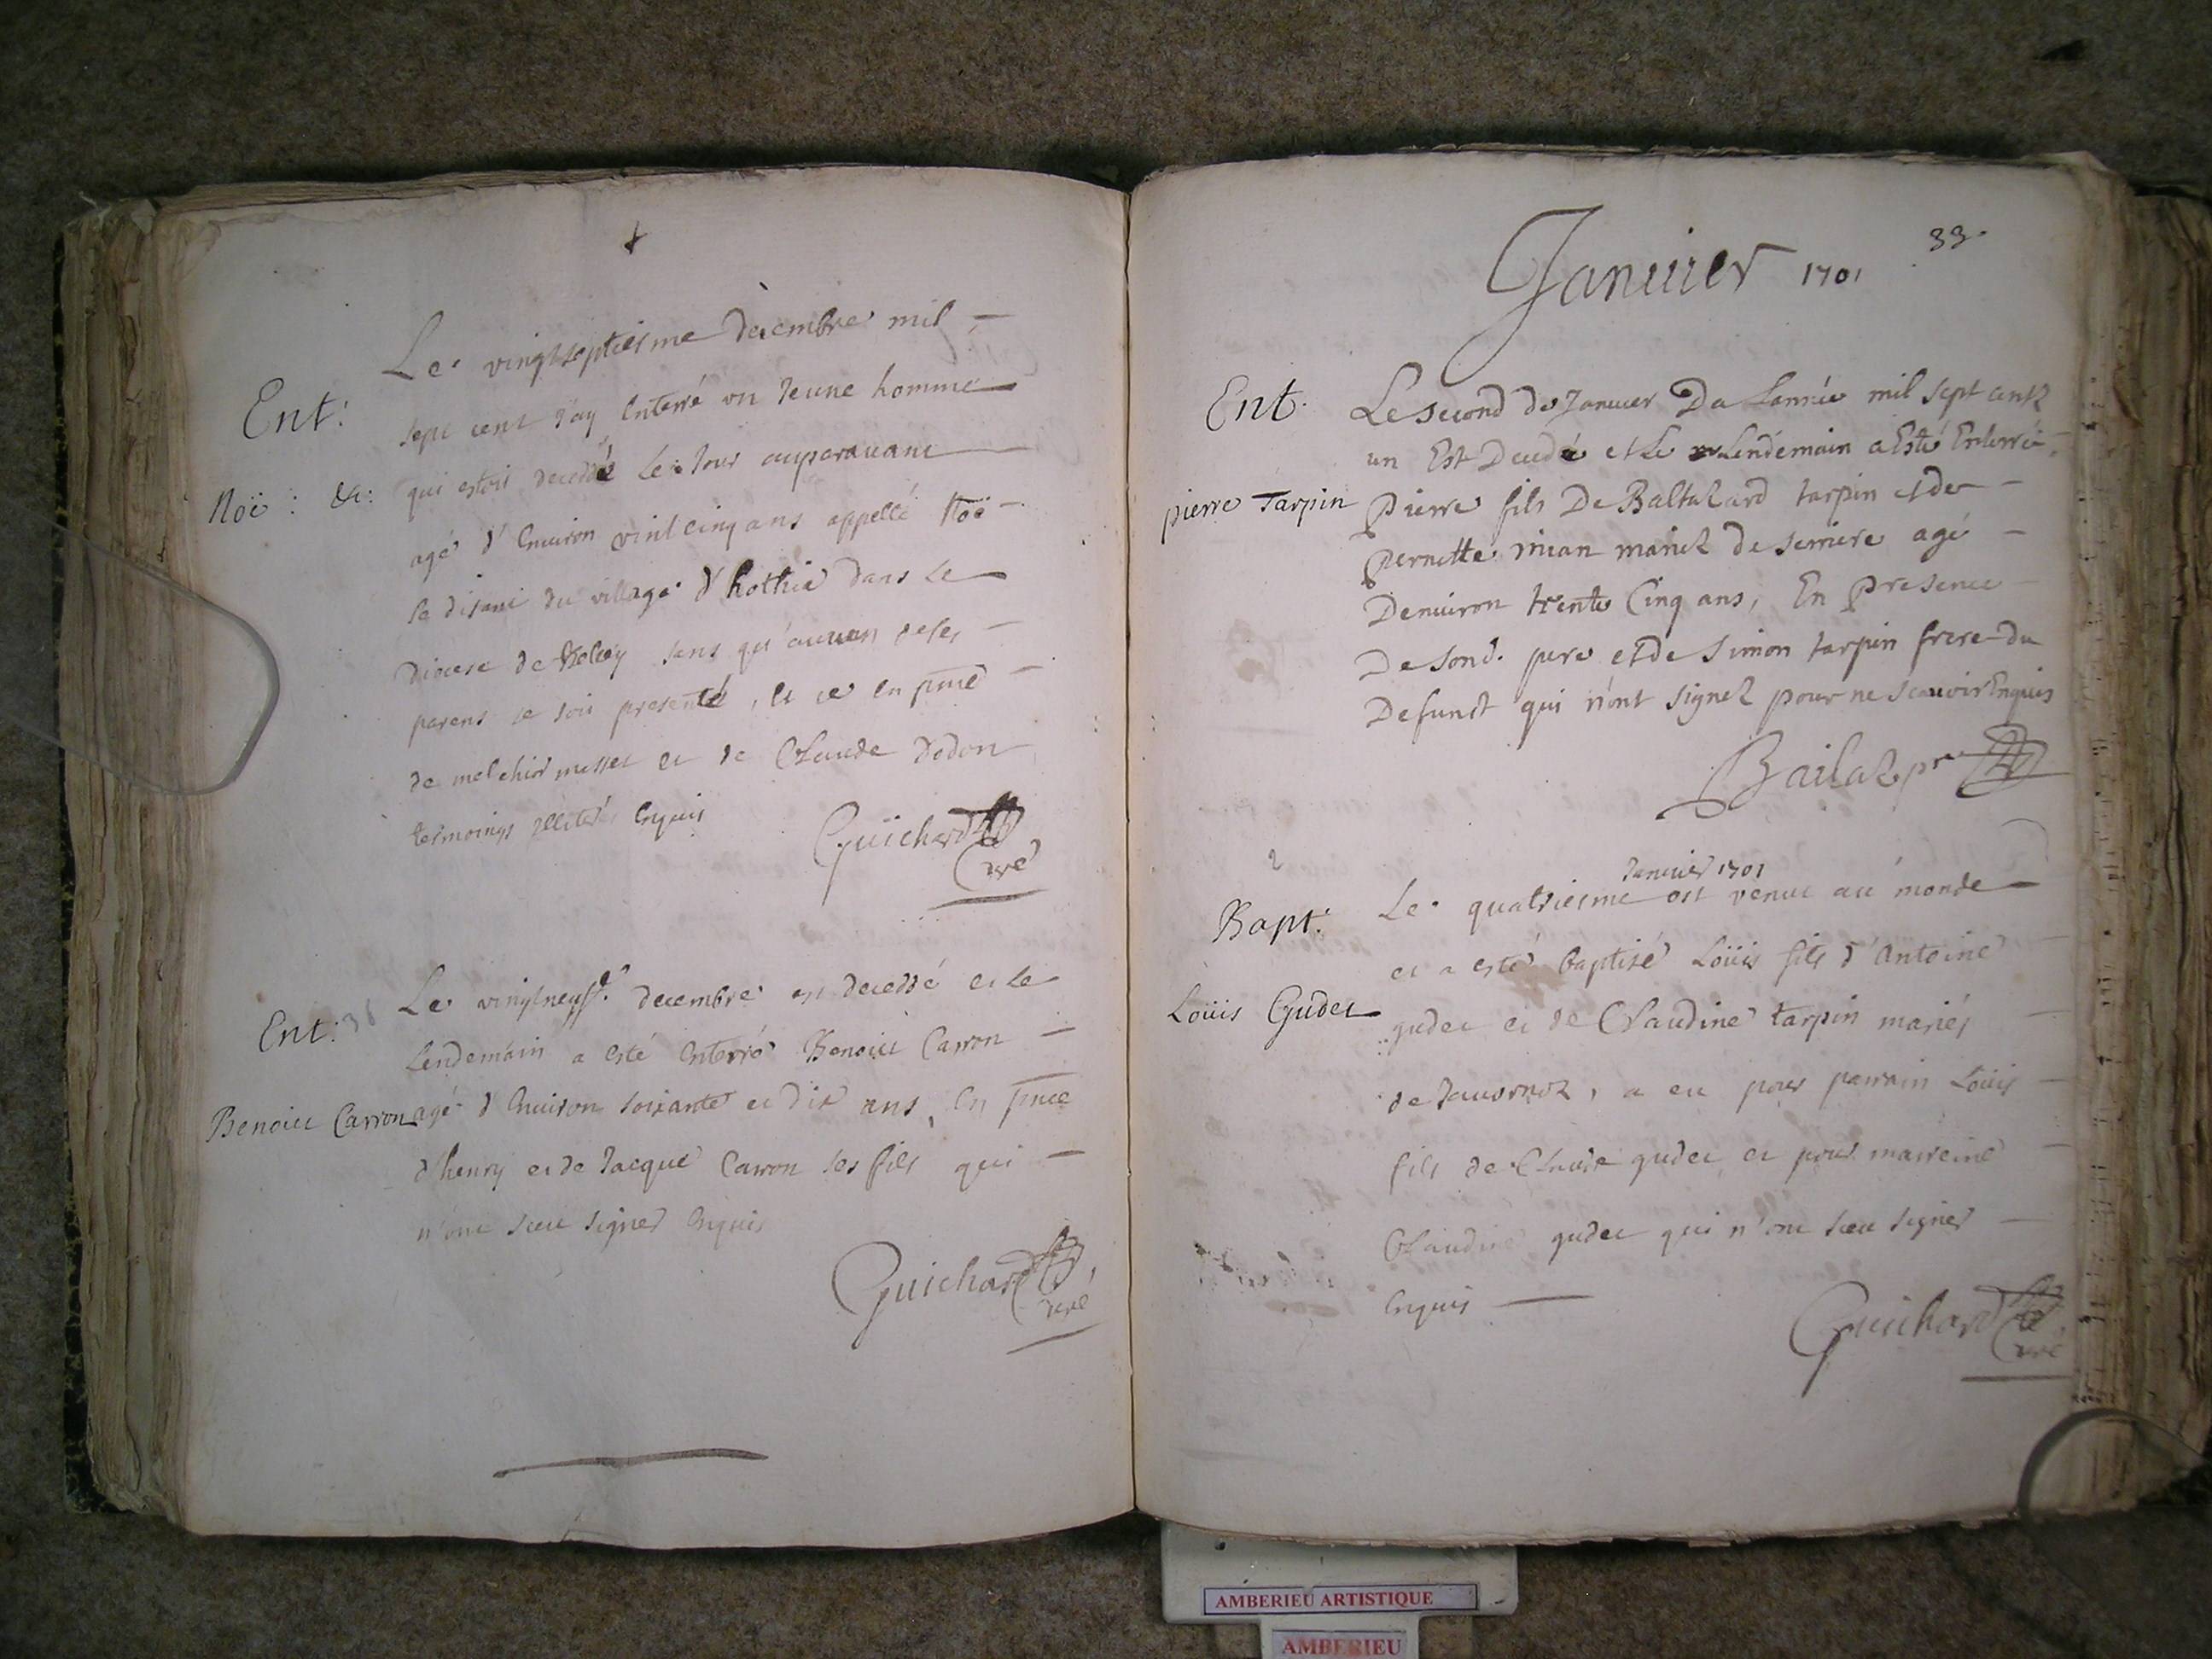 Le vingtseptiesme decembre mil
Ent: sept cent j'ay enterré un jeune homme
Noë : &c: qui estoit decedé le jour auparavant
agé d'environ vint cinq ans appellé Noë
se disant du village d'hothie dans le
diocese de sans qu'aucun de ses
parens se soit presenté, et ce en pnce
de melchior messet et de Claude Dodon
tesmoings illiterés enquis
Guichard
Curé
Le vingtneufe. decembre est decedé et le
Ent: lendemain a esté enterré Benoict Carron
Benoict Carron agé d'environ soixante et dix ans, en pnce
d'henry et de Jacque Carron ses fils qui
n'ont sceu signer enquis
Guichard
Curé
33.
Janvier 1701
Ent. Le second de Janvier Da Lannée mil sept centz
un Est Decedé et Le Lendemain a Esté Enterré
pierre Tarpin Pierre fils De Baltazard tarpin et de
pernette mian mariez de semere agé
Denviron trente Cinq ans, En presence
De sond. pere et de simon tarpin frere du
Defunct qui n'ont signez pour ne scavoir Enquis
Bailaz pre
2
Janvier 1701
Bapt: Le quatriesme est venu au monde
et a esté baptisé Loüis fils d'Antoine
Loüis Gudet gudet et de Claudine tarpin mariés
de Javornoz, a eu pour parrain Loüis
fils de Claude gudet et pour marreine
Claudine gudet qui n'ont sceu signer
enquis
Guichard
Curé
AMBERIEU ARTISTIQUE
AMBERIEU